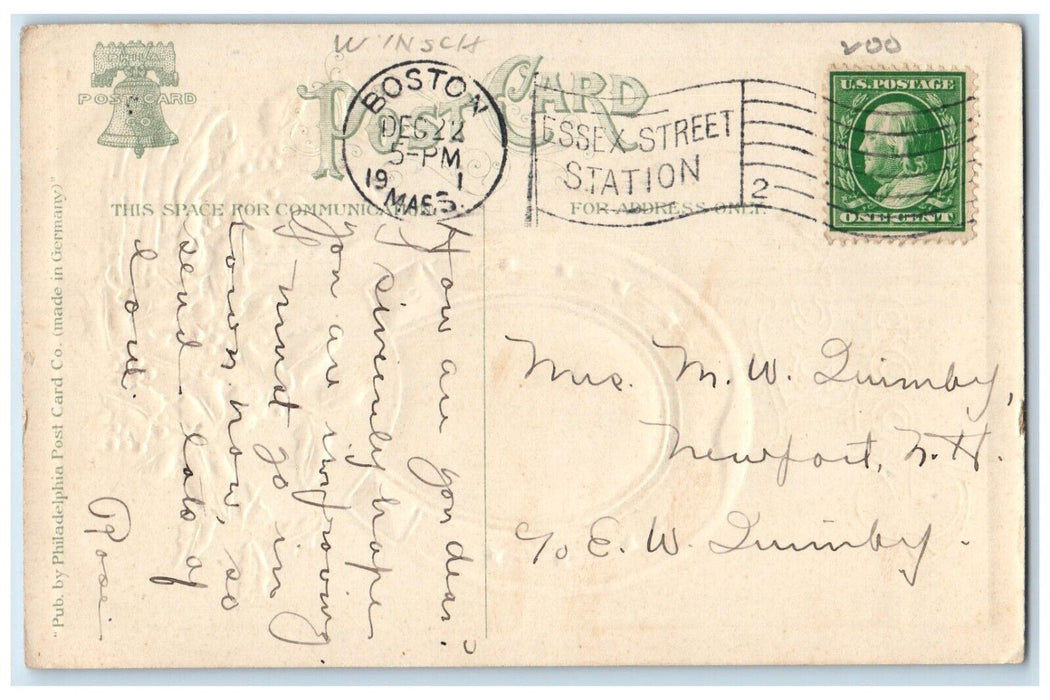 WINSCH
200
PHILA
POST CARD
CO
POST CARD
BOSTON
DEC 22
5-PM
19 1
MASS.
ESSEX STREET
STATION
2
U.S. POSTAGE
ONE CENT
THIS SPACE FOR COMMUNICATION
FOR ADDRESS ONLY.
"Pub. by Philadelphia Post Card Co. (made in Germany)"
How are you dear?
I sincerely hope
you are improving.
I must go in
town now, so
send lots of
love.
Rose.
Mrs. M. W. Quimby,
Newport, N. H.
c/o E. W. Quimby.